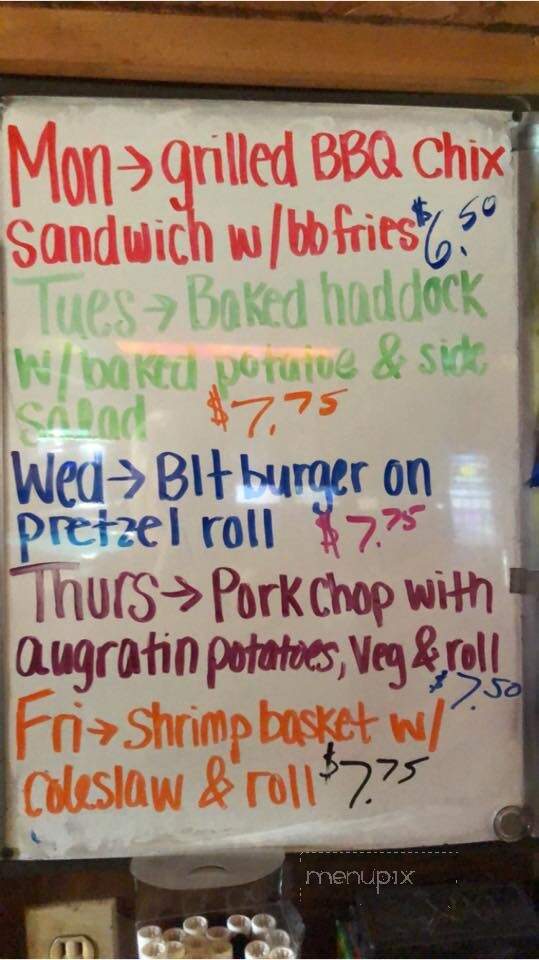 Mon→grilled BBQ Chix
sandwich w/bb fries $6.50
Tues→Baked haddock
w/baked potatoe & side
salad $7.75
Wed→Blt burger on
pretzel roll $7.75
Thurs→Pork chop with
augratin potatoes, Veg & roll
$7.50
Fri→shrimp basket w/
coleslaw & roll $7.75
menupix